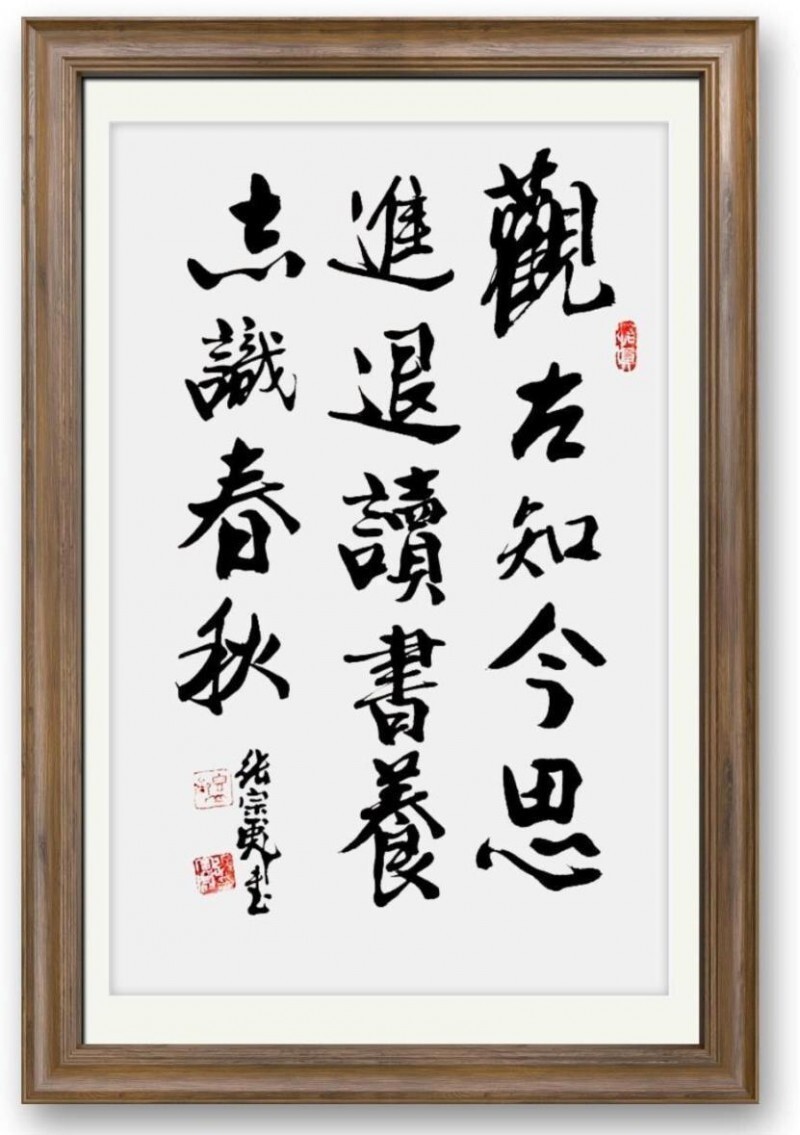 觀古知今思
進退讀書養
志識春秋
张宗彪书